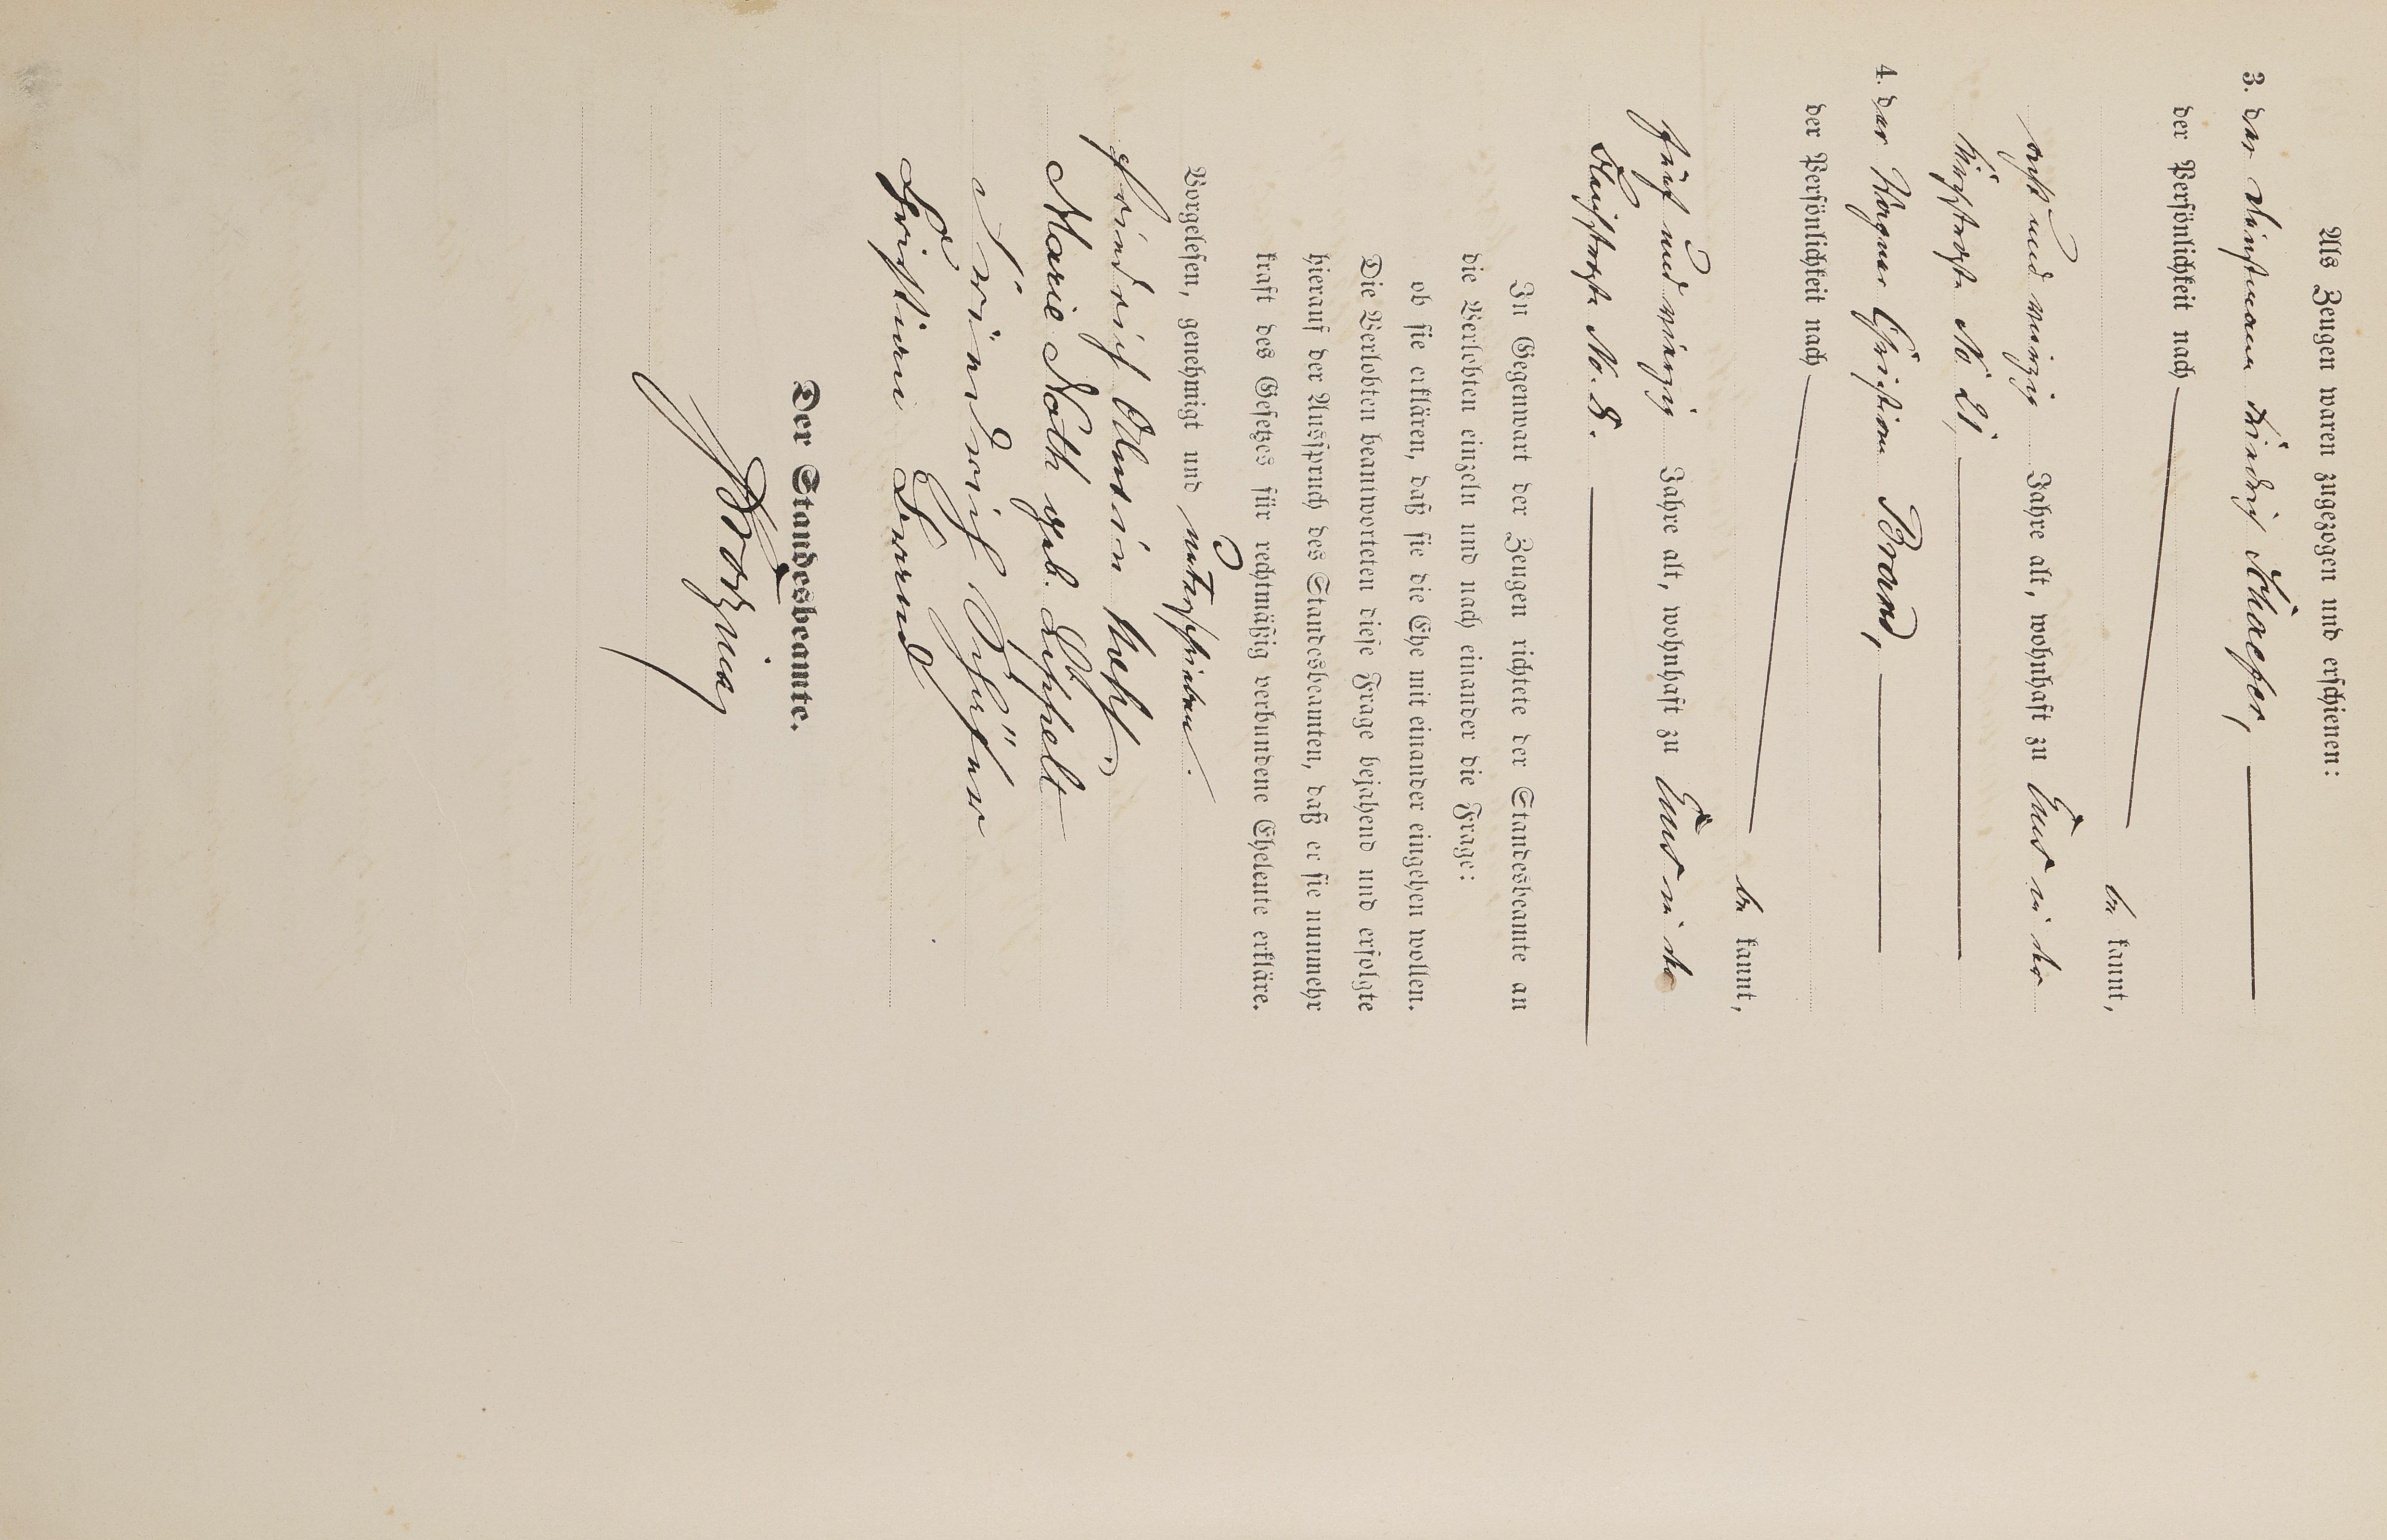 Als Zeugen waren zugezogen und erschienen:
3. der Dienstmann Friedrich Schaefer,
der Persönlichkeit nach
be kannt,
acht und vierzig Jahre alt, wohnhaft zu
No. 21,
4. der Christian Brand,
der Persönlichkeit nach
be kannt,
fünf und vierzig Jahre alt, wohnhaft zu
No. 8.
In Gegenwart der Zeugen richtete der Standesbeamte an
die Verlobten einzeln und nach einander die Frage:
ob sie erklären, daß sie die Ehe mit einander eingehen wollen.
Die Verlobten beantworteten diese Frage bejahend und erfolgte
hierauf der Ausspruch des Standesbeamten, daß er sie nunmehr
kraft des Gesetzes für rechtmäßig verbundene Eheleute erkläre.
Vorgelesen, genehmigt und unterschrieben.
Friedrich
Marie Noth geb. Lippelt
Friedrich Schäfer
Christian Brand
Der Standesbeamte.